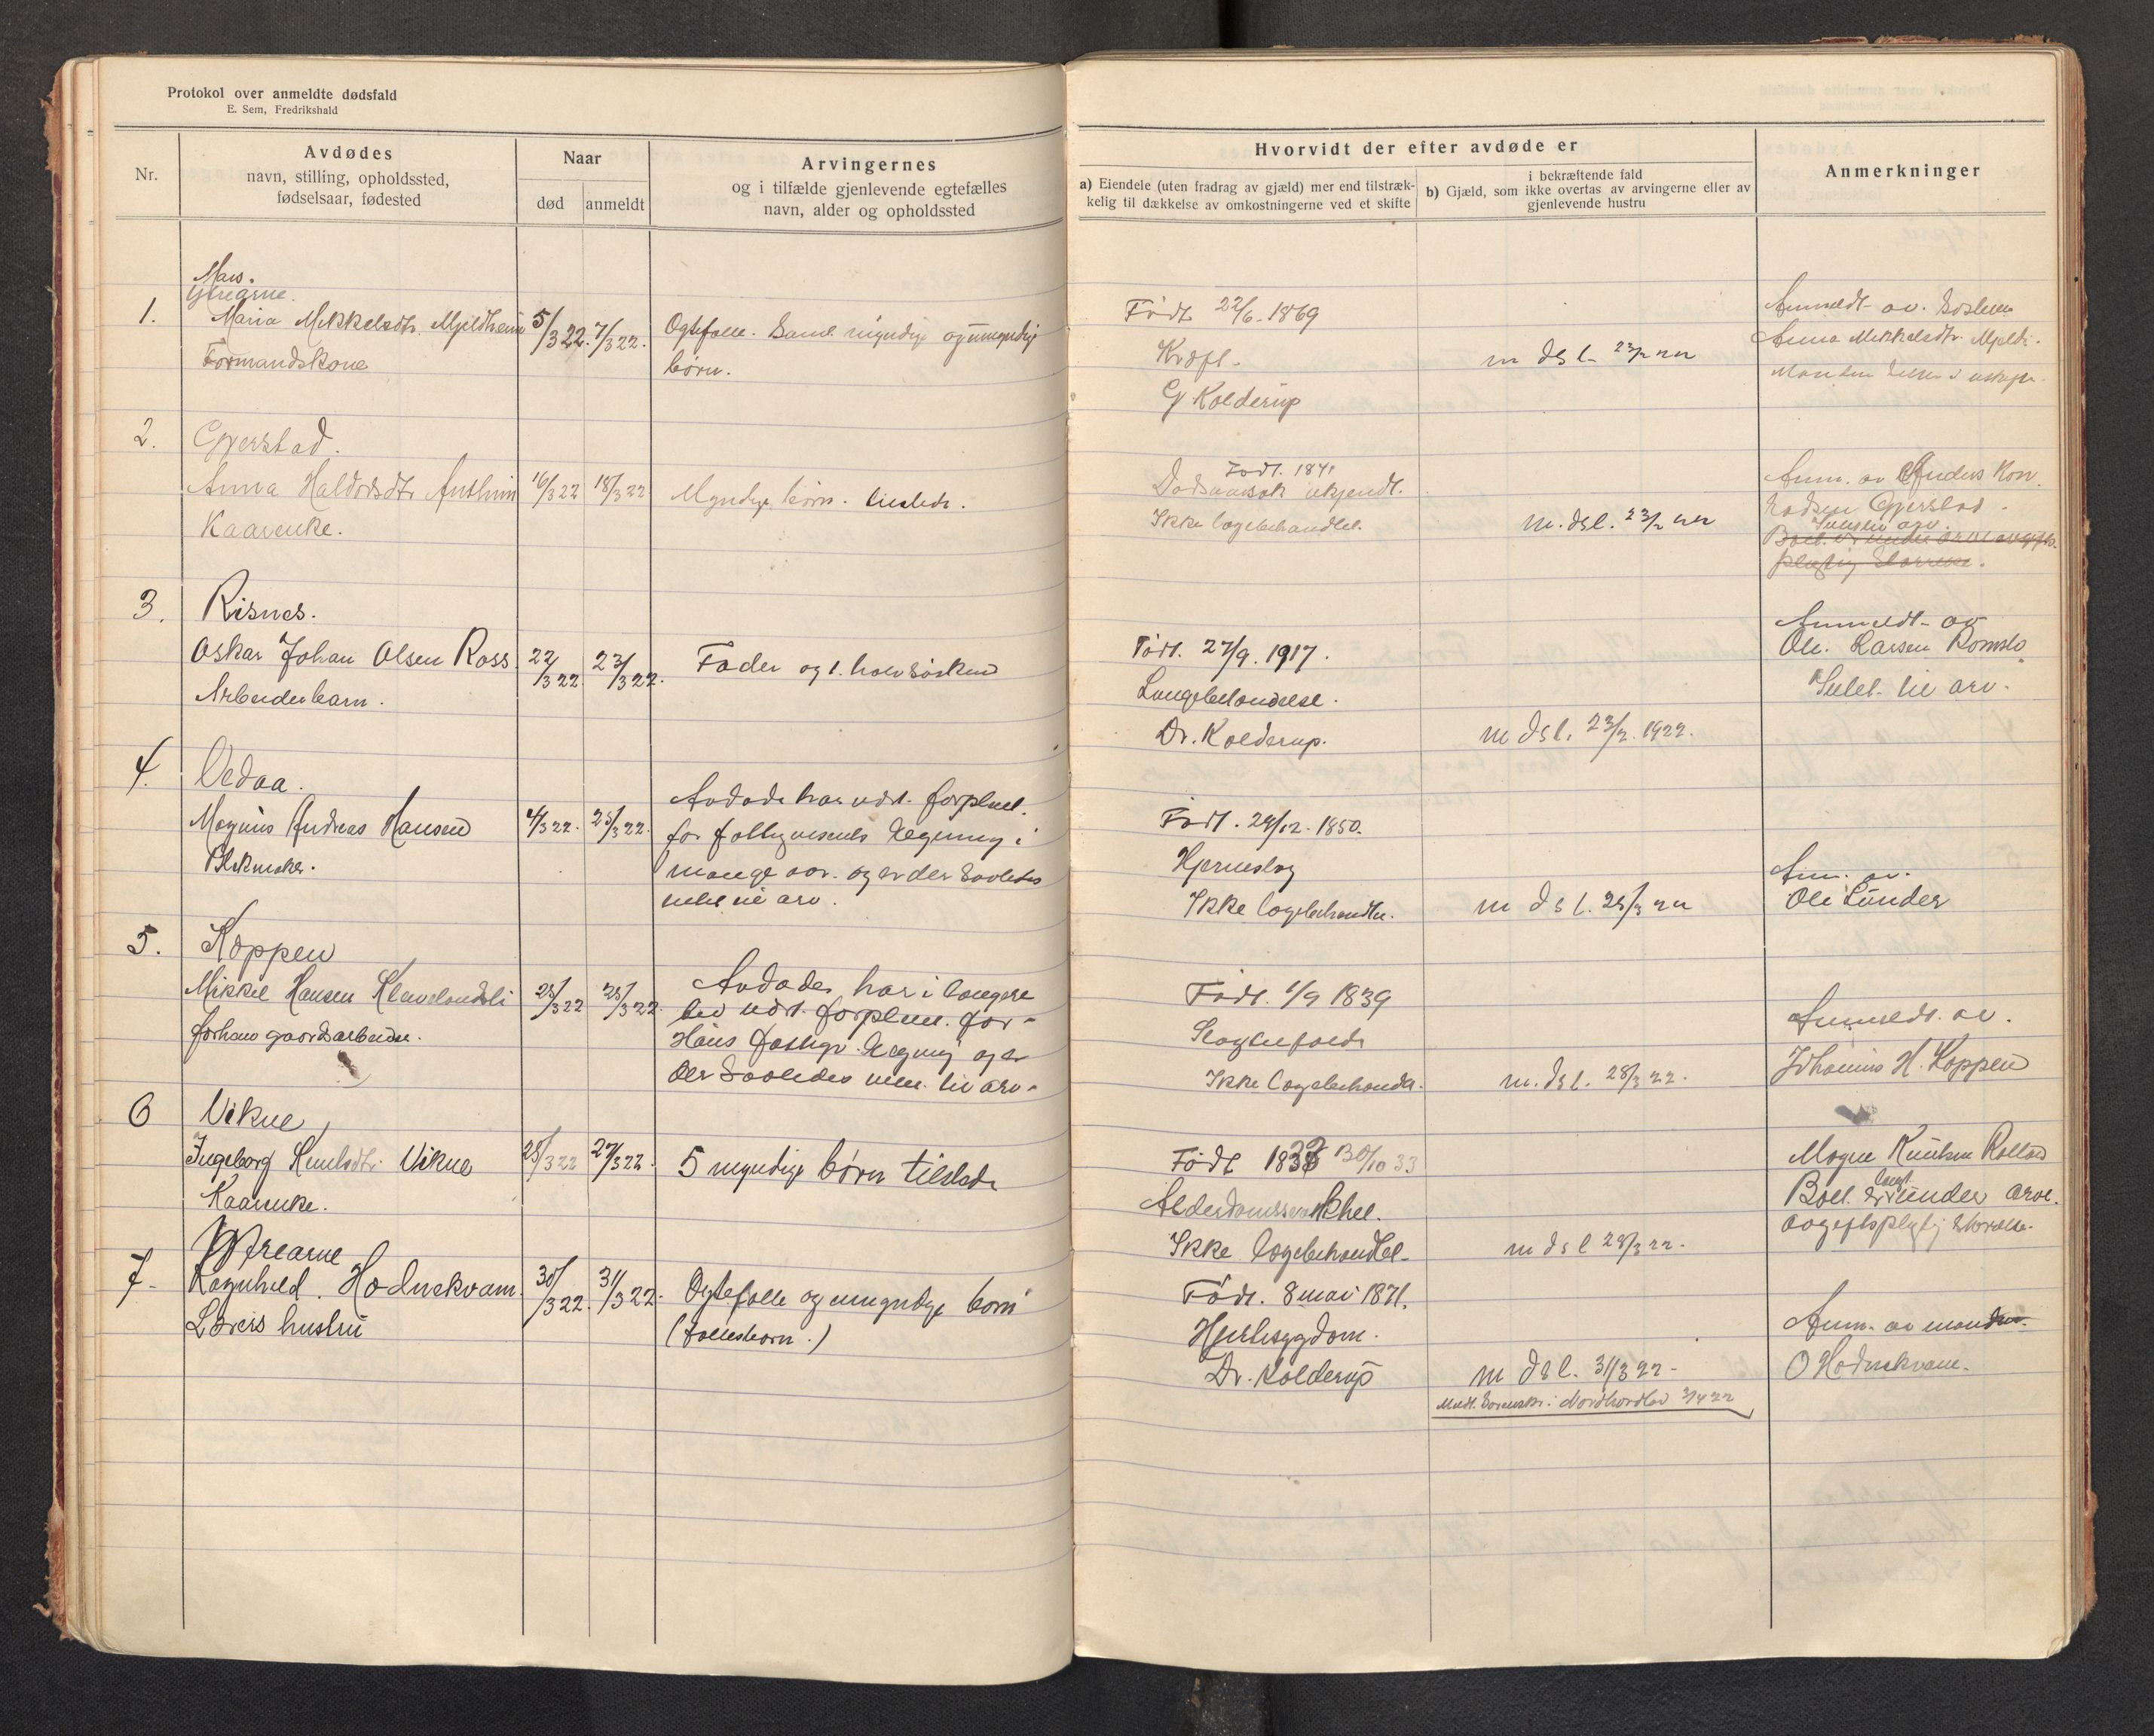 Protokol over anmeldte dødsfald
E. Sem, Fredrikshald
Nr.
Avdødes
navn, stilling, opholdssted,
fødselsaar, fødested
Naar
død
anmeldt
Arvingernes
og i tilfælde gjenlevende egtefælles
navn, alder og opholdssted
Hvorvidt der efter avdøde er
a) Eiendele (uten fradrag av gjæld) mer end tilstræk-
kelig til dækkelse av omkostningerne ved et skifte
i bekræftende fald
b) Gjæld, som ikke overtas av arvingerne eller av
gjenlevende hustru
Anmerkninger
Mars.
1.
Maria Mikkelsdtr. Mjeldheim
5/3 22. 7/3 22.
børn.
Formandskone
Født 22/6-1869
Kræft-
G Kolderup
m dsl- 23/3 22
Anmeldt av
Anna Mikkelsdtr.
2.
Gjerstad.
Anna Haldorsdtr.
16/3 22 18/3 22
Myndige børn.
Kaarenke.
Født. 1841
Dødsaarsak ukjendt.
Ikke lægebehandlet.
m. dsl. 23/3 22
Anm. av Anders
Gjerstad.
3.
Risnes.
Oskar Johan Olsen Ross
22/3 22 23/3 22.
Fader og 1. halvsøsken
Arbeiderbarn.
Født. 27/9. 1917.
Lungebetændelse.
Dr. Kolderup.
m dsl. 23/3. 1922.
Anmeldt av
Ole Larsen Romslo
Intet til arv.
4.
Vedaa.
Magnus Andreas Hansen
4/3 22. 25/3 22.
Blikmaker.
Avdøde har vært forpleiet
for fattigvesenets regning i
mange aar. og er der saaledes
intet til arv.
Født. 29/12. 1850.
Hjerneslag
Ikke lægebehandlet.
m dsl. 25/3 22
Anm. av.
Ole Lunder
5.
Koppen
Mikkel Hansen
25/3 22 25/3 22.
forhen gaardsarbeider.
Avdøde har i længere
tid vært forpleiet for
Haus fattigv. regning og er
der saaledes intet til arv.
Født. 1/9 1839
Ikke lægebehandlet.
m. dsl. 28/3 22.
Anmeldt av.
Johannes H. Koppen
6
Vikne
Ingeborg Knutsdtr. Vikne
25/3 22 27/3 22.
5 myndige børn tilstede
Kaarenke.
Født 1833 30/10 33
Alderdomssvakhet.
Ikke lægebehandlet
m dsl 28/3 22.
Magne Knutsen
Boet er langt under arve-
avgiftspligtig størrelse.
7-
Yttrearne
Ragnhild. Hodnekvam.
30/3 22. 31/3 22.
Egtefælle og umyndige børn
(fællesbarn.)
hustru
Født. 8 mai 1871.
Hjertesygdom.
Dr. Kolderup
m dsl. 31/3 22-
Anm. av manden.
O Hodnekvam.